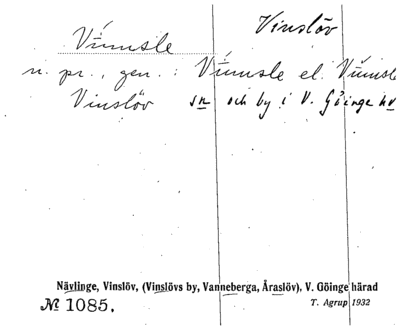 Vinslöv
Vi̋msle
n. pr., gen.: Vi̋msle el. Vi̋msle
Vinslöv sn och by i V. Göinge hd
Nävlinge, Vinslöv, (Vinslövs by, Vanneberga, Åraslöv), V. Göinge härad
№ 1085. T. Agrup 1932